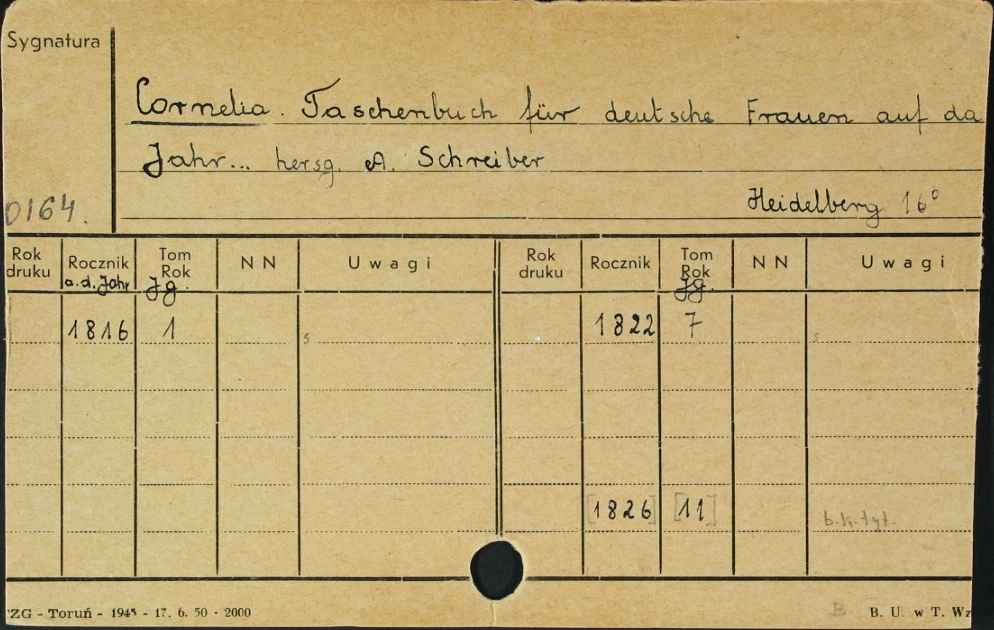 Sygnatura
Cornelia. Taschenbuch für deutsche Frauen auf da
Jahr... hersg. A. Schreiber
0164.
Heidelberg 16°
Rok druku Rocznik a.d. Jahr Tom Rok Jg. NN Uwagi Rok druku Rocznik Tom Rok Jg. NN Uwagi
1816 1 s 1822 7 s
[1826] [11] b.k.tyt.
ZG - Toruń - 1945 - 17. 6. 50 - 2000
B B. U. w T. Wz